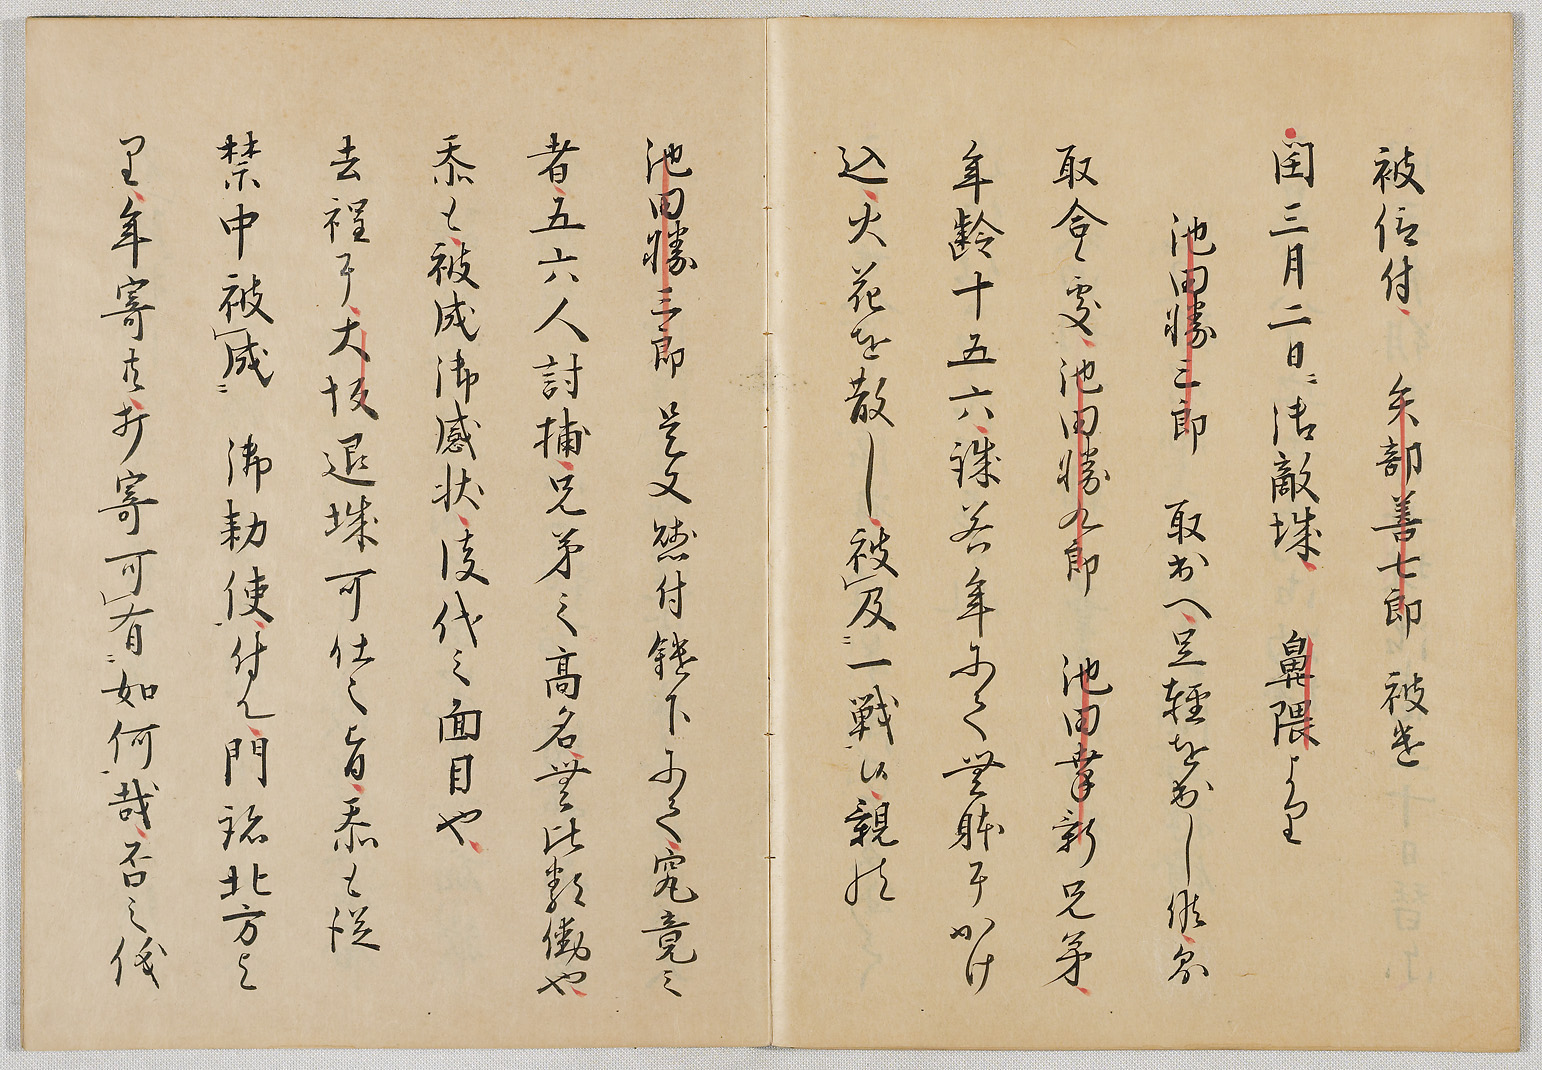 被仰付、矢部善七郎被遣
閏三月二日ニ、御敵城、鼻隈より
池田勝三郎取出へ、足軽を出し候、則
取合候処、池田勝九郎池田幸新兄弟、
年齢十五六、誠若年にて無躰ニかけ
込、火花を散し、被及ニ一戦候、親の
池田勝三郎是又懸付鑓下にて、究竟之
者、五六人討捕、兄弟之高名、無比類働也、
忝も、被成御感状、後代之面目也、
去程ニ、大坂退城可仕之旨、忝も従
禁中被成ニ御勅使、付て、門跡北方よ
里、年寄共、打寄可有ニ如何哉、否之儀